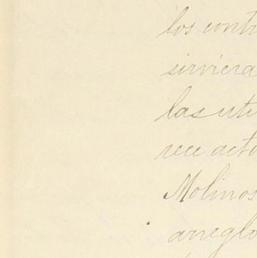 los cont
sirviera
las uti
rece acto
Molinos
arreglo